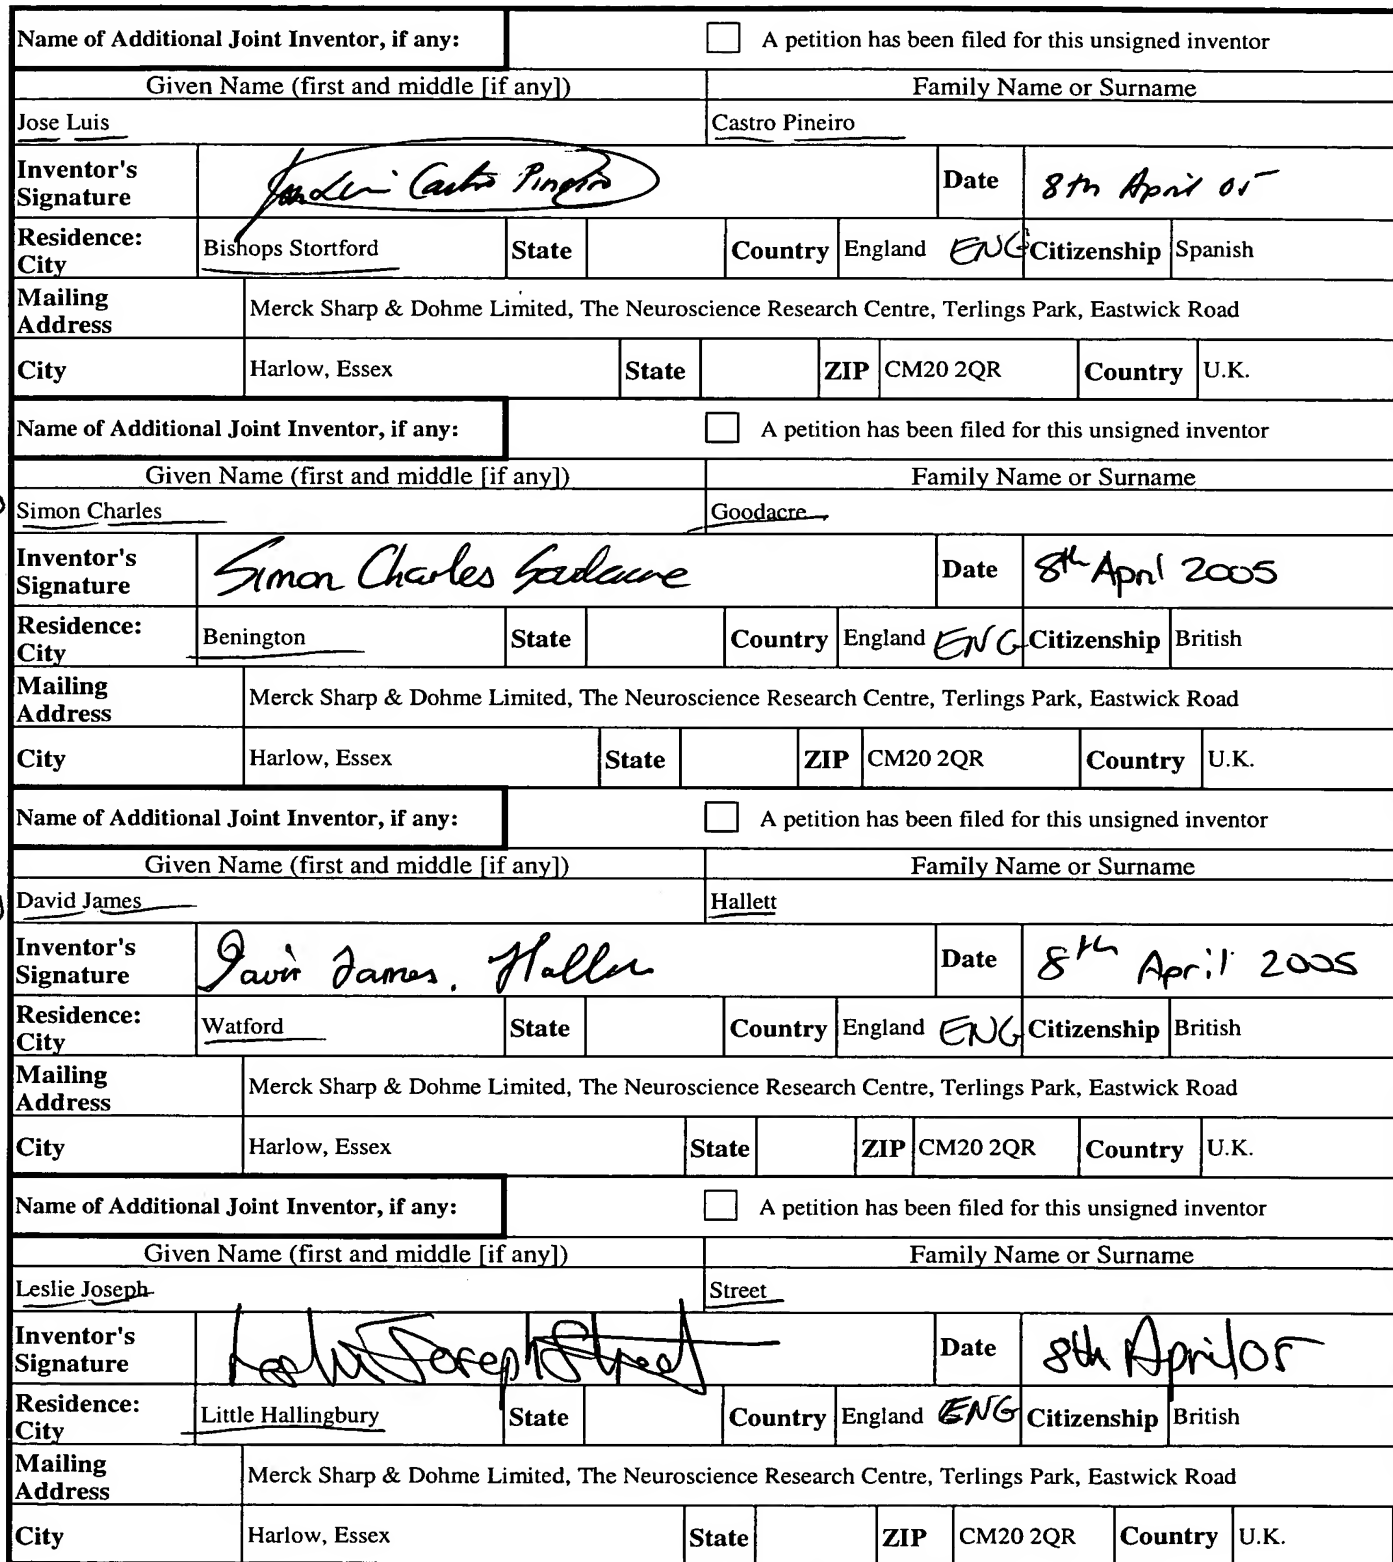 Name of Additional Joint Inventor, if any: A petition has been filed for this unsigned inventor
Given Name (first and middle [if any]) Family Name or Surname
Jose Luis Castro Pineiro
Inventor's Signature Castro Date 8th April 05
Residence: City Bishops Stortford State Country England ENG Citizenship Spanish
Mailing Address Merck Sharp & Dohme Limited, The Neuroscience Research Centre, Terlings Park, Eastwick Road
City Harlow, Essex State ZIP CM20 2QR Country U.K.
Name of Additional Joint Inventor, if any: A petition has been filed for this unsigned inventor
Given Name (first and middle [if any]) Family Name or Surname
Simon Charles Goodacre
Inventor's Signature Simon Charles Goodacre Date 8th April 2005
Residence: City Benington State Country England ENG Citizenship British
Mailing Address Merck Sharp & Dohme Limited, The Neuroscience Research Centre, Terlings Park, Eastwick Road
City Harlow, Essex State ZIP CM20 2QR Country U.K.
Name of Additional Joint Inventor, if any: A petition has been filed for this unsigned inventor
Given Name (first and middle [if any]) Family Name or Surname
David James Hallett
Inventor's Signature David James. Hallett Date 8th April 2005
Residence: City Watford State Country England ENG Citizenship British
Mailing Address Merck Sharp & Dohme Limited, The Neuroscience Research Centre, Terlings Park, Eastwick Road
City Harlow, Essex State ZIP CM20 2QR Country U.K.
Name of Additional Joint Inventor, if any: A petition has been filed for this unsigned inventor
Given Name (first and middle [if any]) Family Name or Surname
Leslie Joseph Street
Inventor's Signature Leslie Joseph Street Date 8th April 05
Residence: City Little Hallingbury State Country England ENG Citizenship British
Mailing Address Merck Sharp & Dohme Limited, The Neuroscience Research Centre, Terlings Park, Eastwick Road
City Harlow, Essex State ZIP CM20 2QR Country U.K.